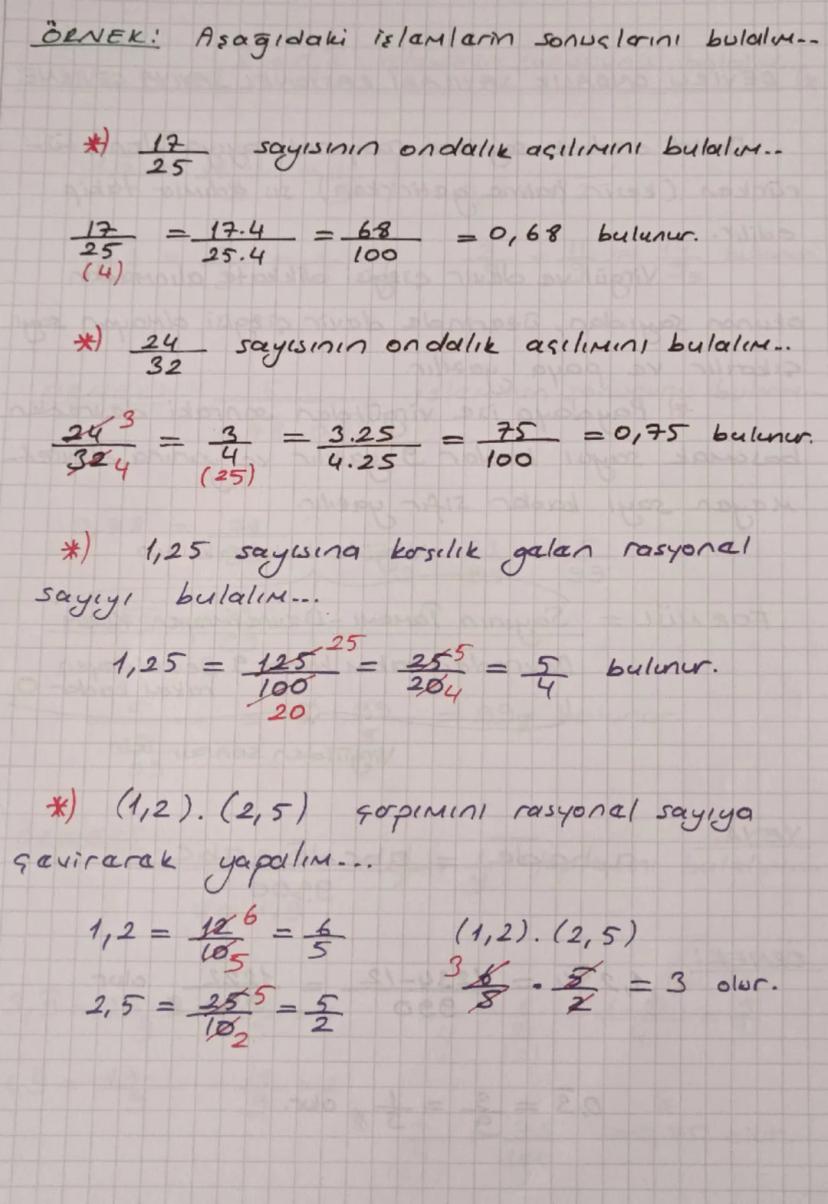 ÖRNEK: Aşağıdaki işlemlerin sonuçlarını bulalım...
*) 17/25 sayısının ondalık açılımını bulalım...
17/25 (4) = 17.4/25.4 = 68/100 = 0,68 bulunur.
*) 24/32 sayısının ondalık açılımını bulalım...
24/32 3 4 = 3/4 (25) = 3.25/4.25 = 75/100 = 0,75 bulunur.
*) 1,25 sayısına karşılık gelen rasyonel
sayıyı bulalım...
1,25 = 125/100 25 20 = 25/20 5 4 = 5/4 bulunur.
*) (1,2).(2,5) çarpımını rasyonel sayıya
çevirerek yapalım...
1,2 = 12/10 6 5 = 6/5
2,5 = 25/10 5 2 = 5/2
(1,2).(2,5)
3 6/5 . 5/2 = 3 olur.